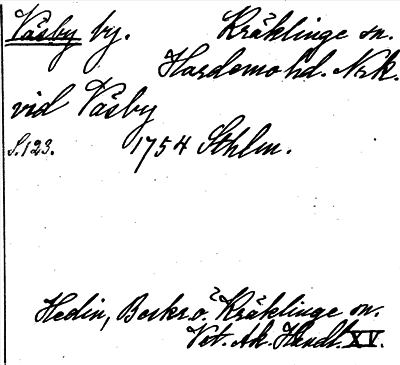 Väsby by. Kräklinge sn.
Hardemo hd. Nrk.
vid Väsby
S. 123. 1754 Sthlm.
Hedin, Beskr. o. Kräklinge sn.
Vet. Ak. Handl. XV.